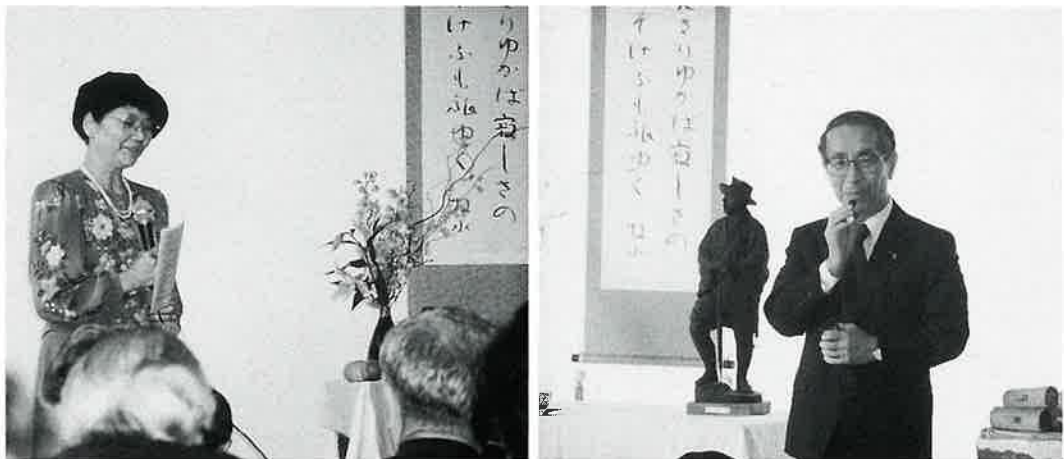 さりゆかは寂しさの
けふも旅ゆく 牧水
さりゆかは寂しさの
そけふも旅ゆく 牧水